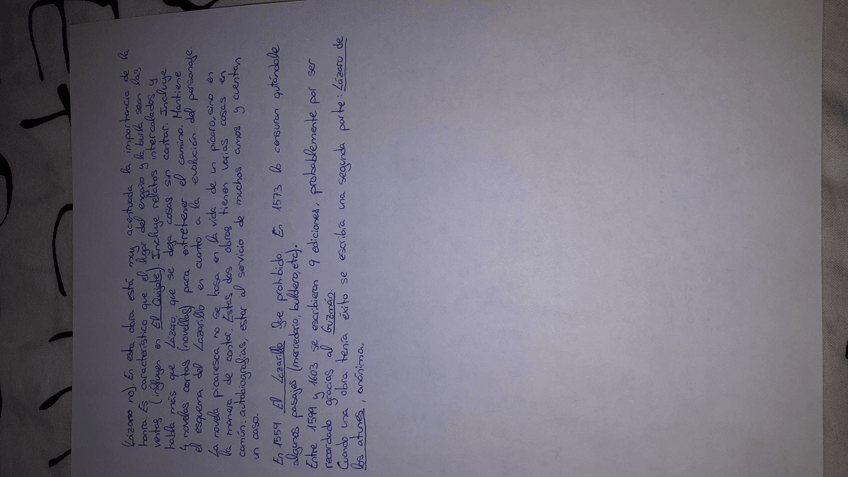 Lázaro no). En esta obra está muy acentuada la importancia de la
honra. Es característico que el lugar del engaño y la burla sean las
ventas (influyen en El Quijote). Incluye relatos intercalados y
habla más que Lázaro, que se deja cosas sin contar. Incluye
4 novelas cortas (novellas) para entretener el camino. Mantiene
el esquema del Lazarillo en cuanto a la evolución del personaje
La novela picaresca no se basa en la vida de un pícaro, sino en
la manera de contar. Estas dos obras tienen varias cosas en
común: autobiografías, estar al servicio de muchos amos y cuentan
un caso.
En 1559 El Lazarillo fue prohibido. En 1573 lo censuran quitándole
algunos pasajes (mercedario, buldero, etc).
Entre 1599 y 1603 se escribieron 9 ediciones, probablemente por ser
recordado gracias al Guzmán.
Cuando una obra tenía éxito se escribía una segunda parte: Lázaro de
los atunes, anónima.